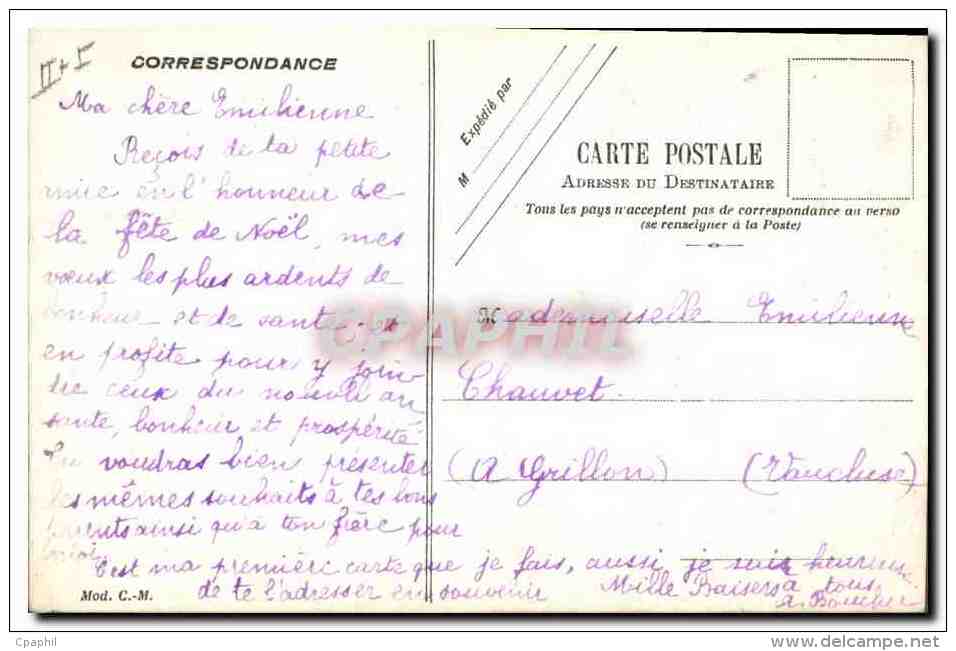 II + I
CORRESPONDANCE
Ma chère Emilienne
Reçois de ta petite
amie en l'honneur de
la fête de Noël, mes
vœux les plus ardents de
bonheur et de santé. Je
en profite pour y join-
dre ceux du nouvel an
santé, bonheur et prospérité
Tu voudras bien présenter
les mêmes souhaits à tes bons
parents ainsi qu'à ton frère pour
C'est ma première carte que je fais, aussi je suis heureuse
de te l'adresser en souvenir
Mille Baisers à tous
Mod. C.-M.
Expédié par
M
CARTE POSTALE
ADRESSE DU DESTINATAIRE
Tous les pays n'acceptent pas de correspondance au verso
(se renseigner à la Poste)
Mademoiselle Emilienne
Chauvet.
(A Grillon) (Vaucluse)
CPAPHIL
Cpaphil
www.delcampe.net